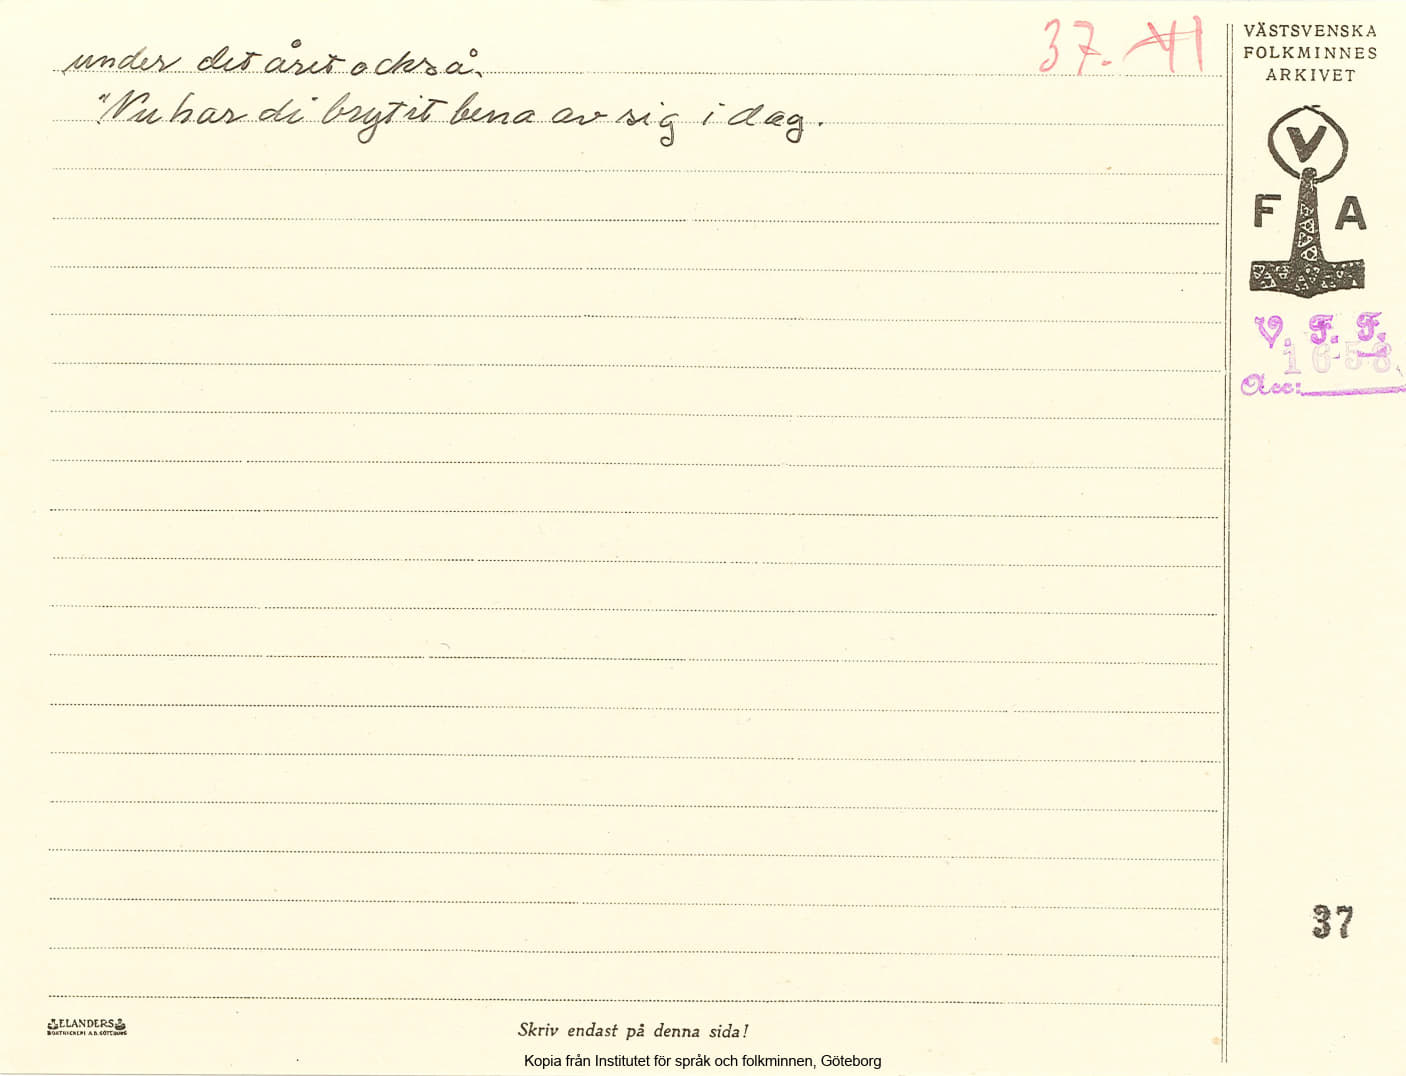 under det året också.
"Nu har di brytit bena av sig i dag.
37.
VÄSTSVENSKA
FOLKMINNES
ARKIVET
V
F A
V. F. F.
1658
Acc:
37
ELANDERS
BOKTRYCKERI A.B. GÖTEBORG
Skriv endast på denna sida!
Kopia från Institutet för språk och folkminnen, Göteborg